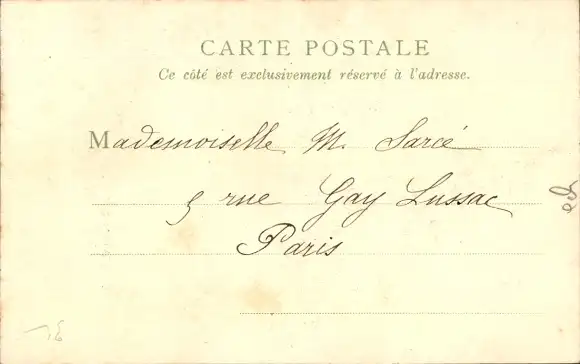 CARTE POSTALE
Ce côté est exclusivement réservé à l'adresse.
Mademoiselle M. Sarcé
5 rue Gay Lussac
Paris